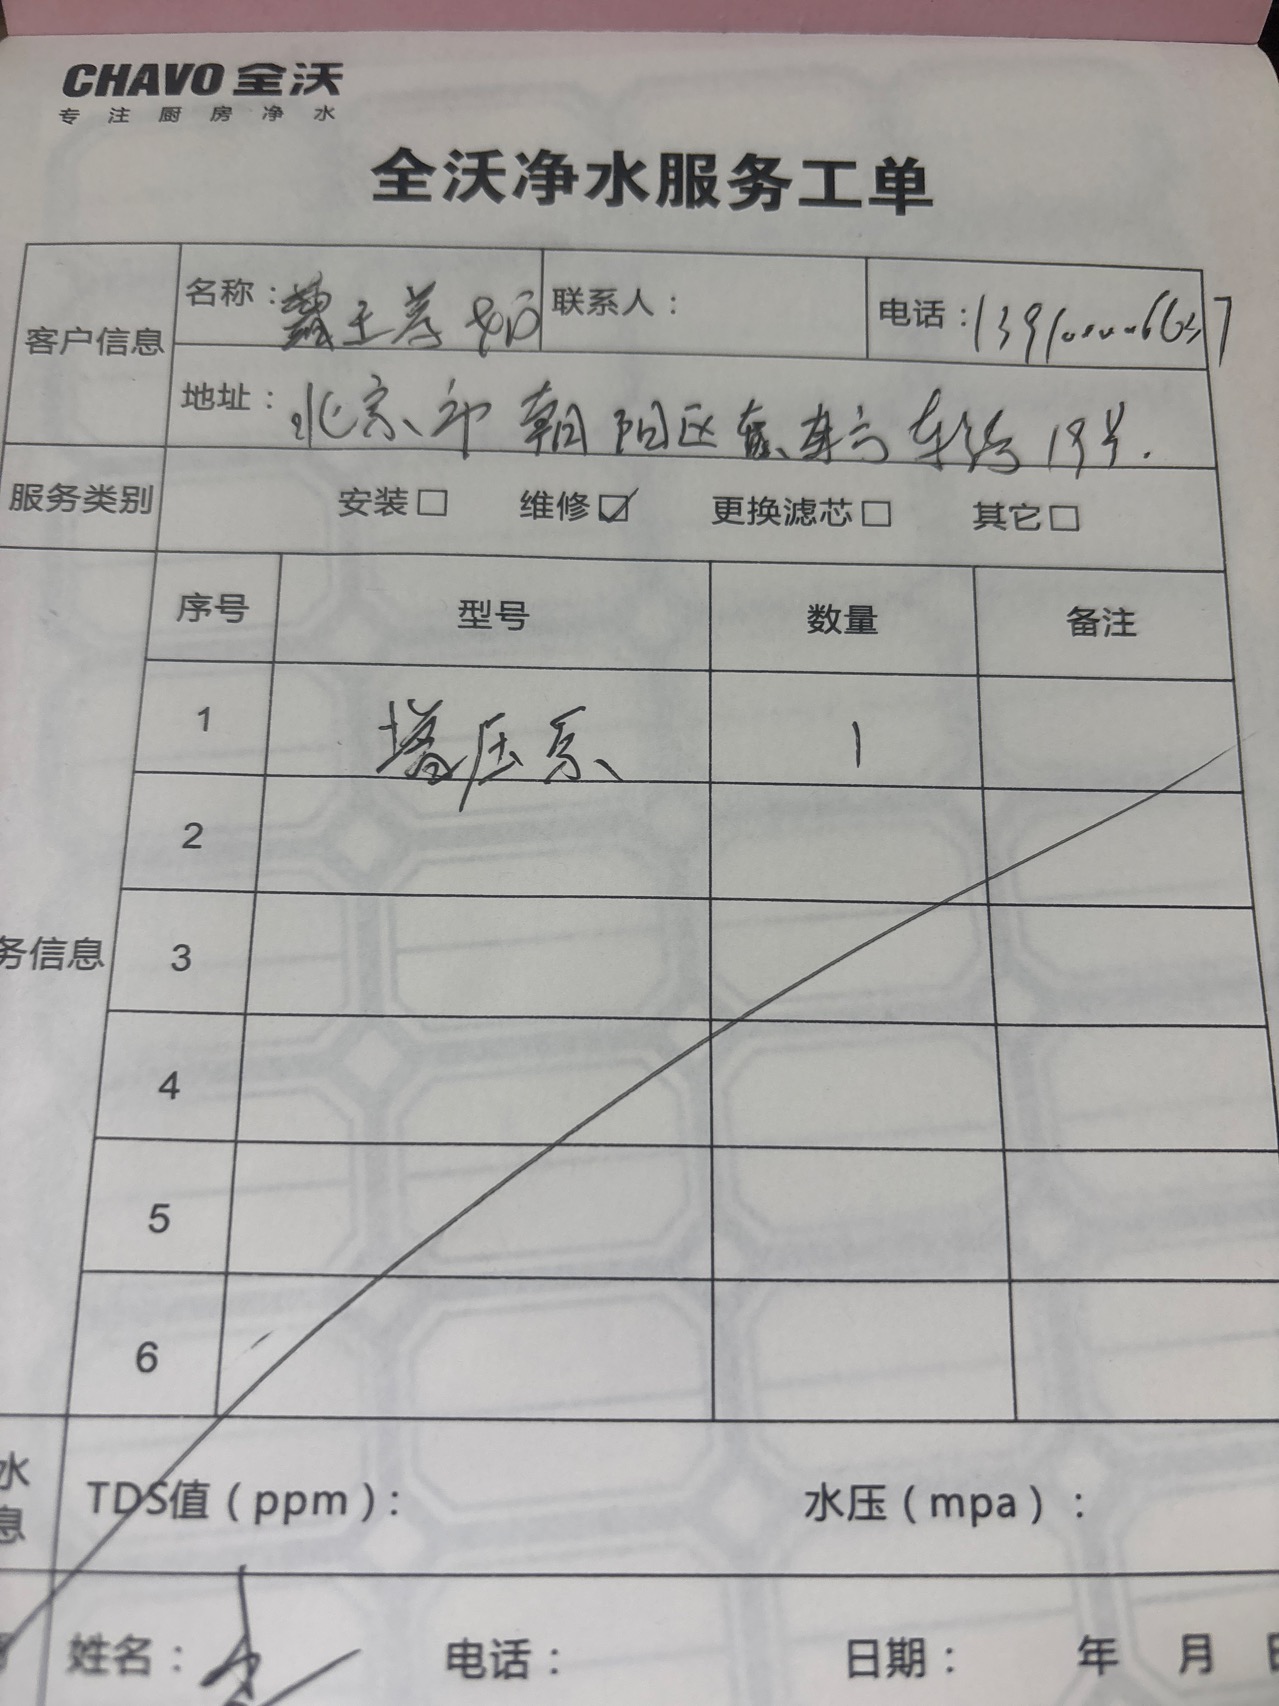 CHAVO 全沃
专注厨房净水
全沃净水服务工单
客户信息
名称：
联系人：
电话：
地址：北京市朝阳区
服务类别
安装□ 维修☑ 更换滤芯□ 其它□
序号 型号 数量 备注
1 增压泵 1
2
务信息
3
4
5
6
水
息
TDS值（ppm）： 水压（mpa）：
姓名： 电话： 日期： 年 月